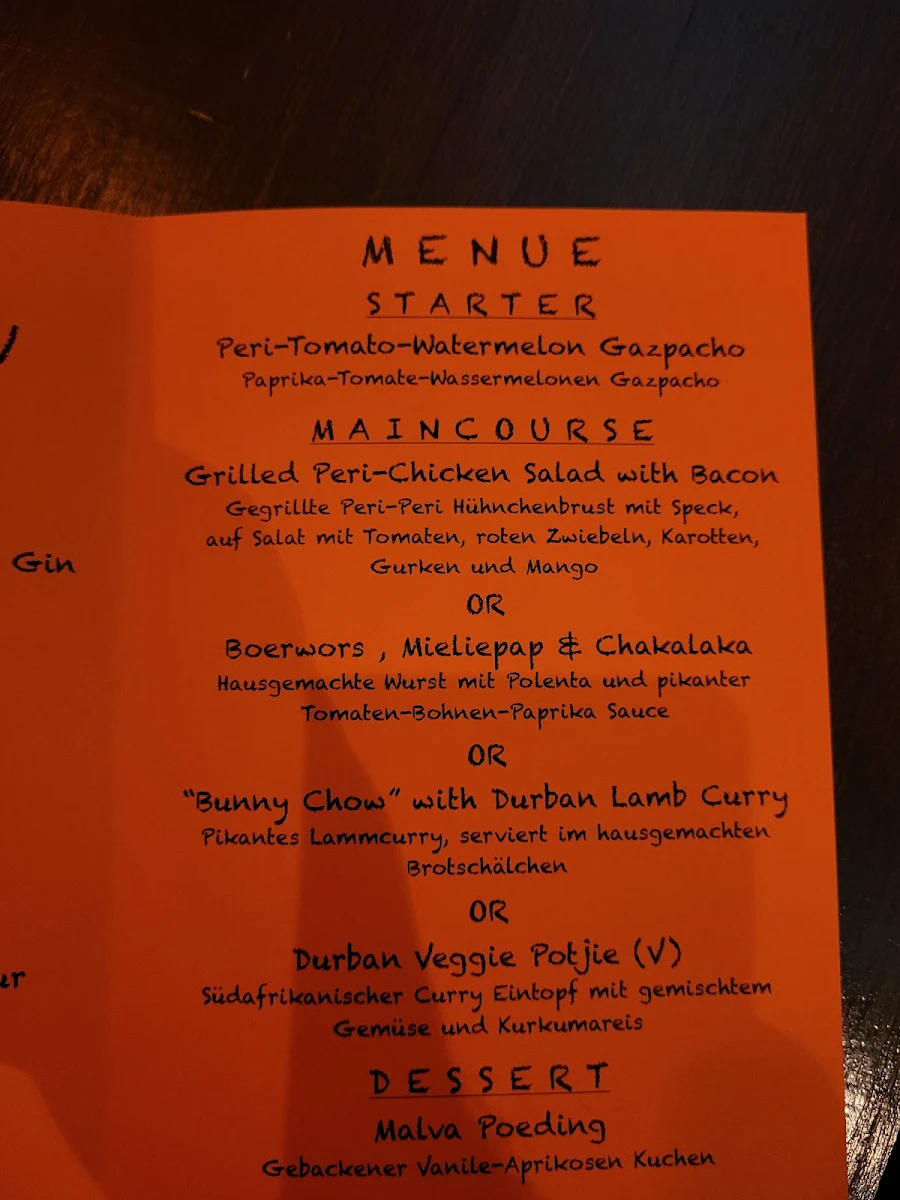 MENUE
STARTER
Peri-Tomato-Watermelon Gazpacho
Paprika-Tomate-Wassermelonen Gazpacho
MAINCOURSE
Grilled Peri-Chicken Salad with Bacon
Gegrillte Peri-Peri Hühnchenbrust mit Speck,
auf Salat mit Tomaten, roten Zwiebeln, Karotten,
Gurken und Mango
OR
Boerwors , Mieliepap & Chakalaka
Hausgemachte Wurst mit Polenta und pikanter
Tomaten-Bohnen-Paprika Sauce
OR
"Bunny Chow" with Durban Lamb Curry
Pikantes Lammcurry, serviert im hausgemachten
Brotschälchen
OR
Durban Veggie Potjie (V)
Südafrikanischer Curry Eintopf mit gemischtem
Gemüse und Kurkumareis
DESSERT
Malva Poeding
Gebackener Vanile-Aprikosen Kuchen
Gin